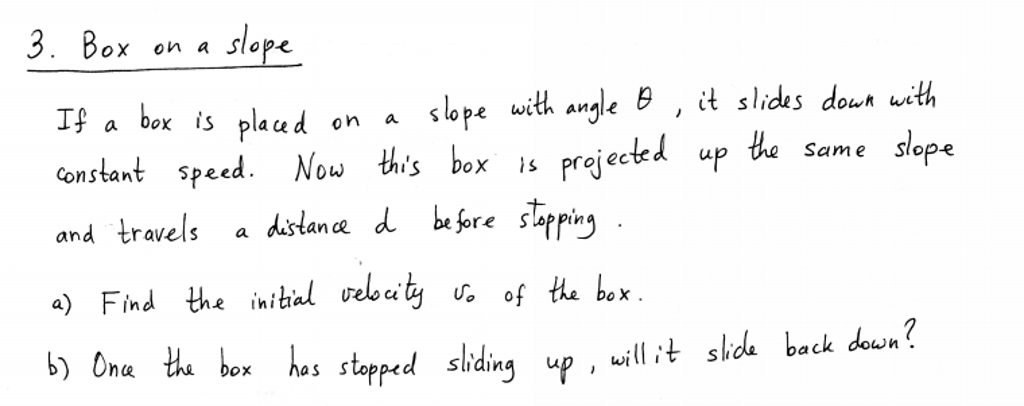 3. Box on a slope
If a box is placed on a slope with angle θ, it slides down with
constant speed. Now this box is projected up the same slope
and travels a distance d before stopping.
a) Find the initial velocity v₀ of the box.
b) Once the box has stopped sliding up, will it slide back down?